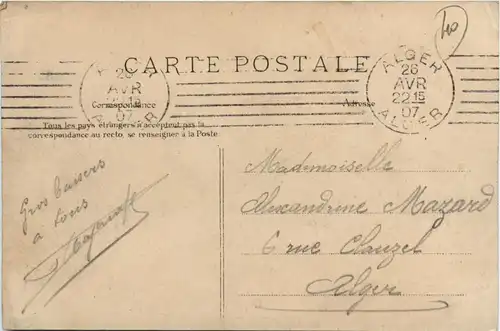 40
CARTE POSTALE
ALGER
26
AVR
22 15
07
ALGER
26
AVR
07
Correspondance
Adresse
Tous les pays étrangers n'acceptent pas la
correspondance au recto, se renseigner à la Poste.
Gros baisers
a tous
Mademoiselle
Alexandrine Mazard
6 rue Clauzel
Alger